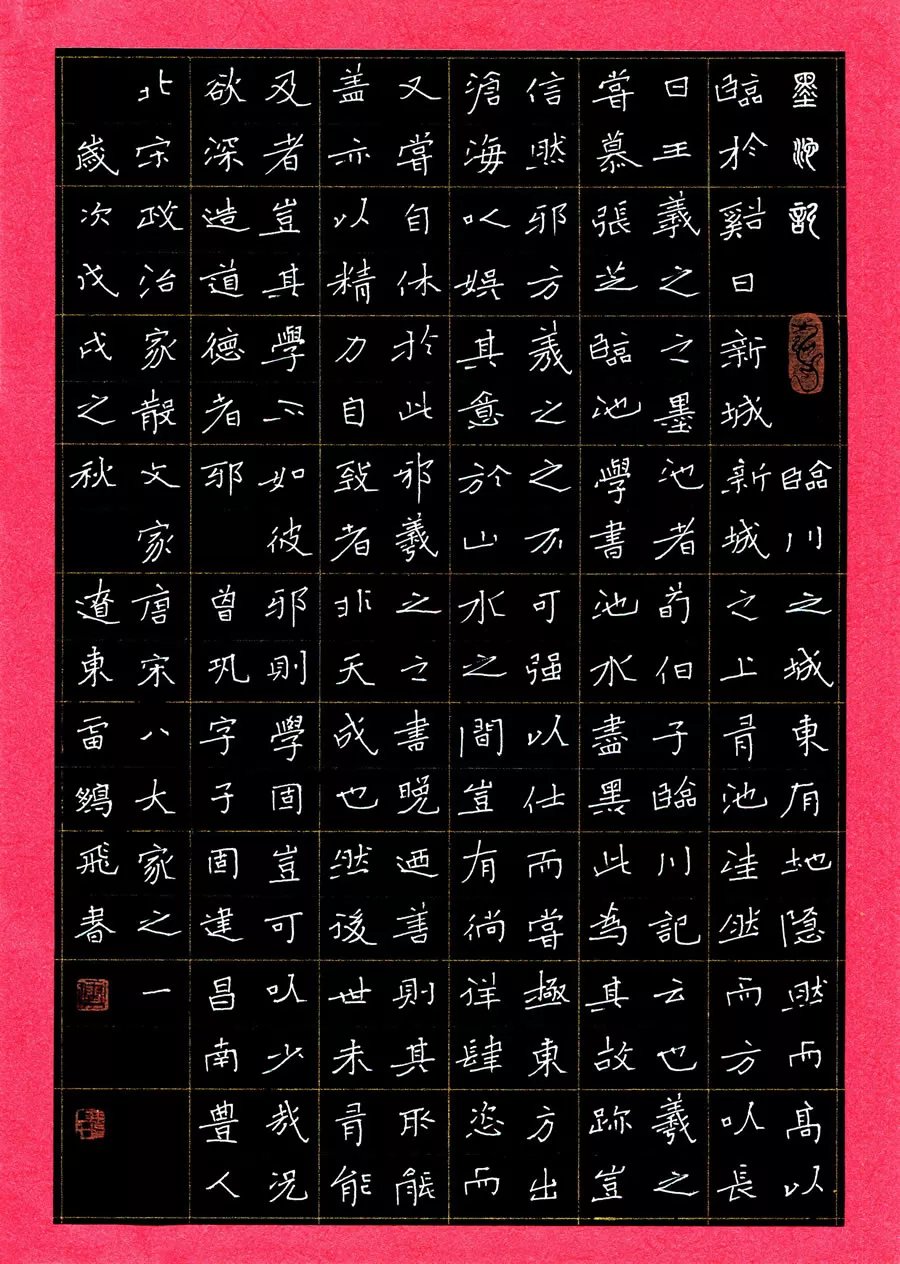 墨池記 臨川之城東有地隐然而高以
臨於谿曰新城新城之上有池洼然而方以長
曰王羲之之墨池者荀伯子臨川記云也羲之
嘗慕張芝臨池學書池水盡黑此為其故跡豈
信然邪方羲之之不可强以仕而嘗極東方出
滄海以娱其意於山水之間豈有徜徉肆恣而
又嘗自休於此邪羲之之書晚迺善則其所能
盖亦以精力自致者非天成也然後世未有能
及者豈其學不如彼邪則學固豈可以少哉况
欲深造道德者邪 曾巩字子固建昌南豊人
北宋政治家散文家唐宋八大家之一
歲次戊戌之秋 遼東雷飛書